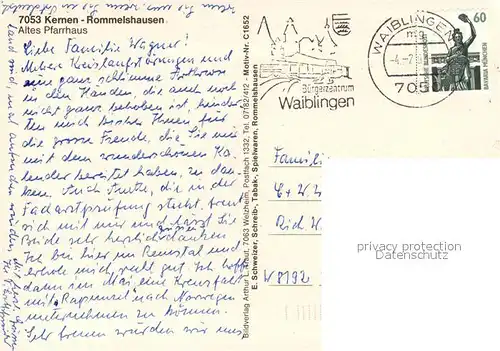 7053 Kernen - Rommelshausen
Altes Pfarrhaus
Liebe Familie Wagner!
Meine Kreislaufstörungen und
eine ganz schlimme
in den Händen, die auch noch
nicht ganz behoben ist, hinder-
ten mich bisher Ihnen für
die grosse Freude, die Sie mir
mit dem wunderschönen Ka-
lender bereitet haben, zu dan-
ken. Auch Ruth, die in der
Facharztprüfung steckt, freut
sich mit mir und lässt Sie
Beide sehr herzlich grüßen
danken
Ich bin hier im Remstal und
erhole mich recht gut. Ich hoffe
dann im Mai eine Kreuzfahrt
mit nach Norwegen
unternehmen zu können.
Sehr freuen würden wir uns
Bildverlag Arthur F. Krüger, 7063 Welzheim, Postfach 1332, Tel. 07182/412 - Motiv-Nr. C1652
E. Schweizer, Schreib-, Tabak-, Spielwaren, Rommelshausen
Bürgerzentrum
Waiblingen
WAIBLINGEN
mg
705
60
BAVARIA MÜNCHEN
Famili
W 8192
privacy protection
Datenschutz